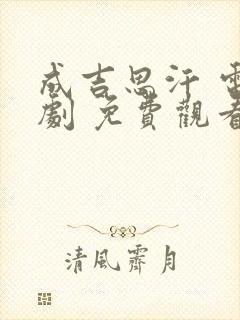 成吉思汗 電
劇 免費觀看
清風霽月